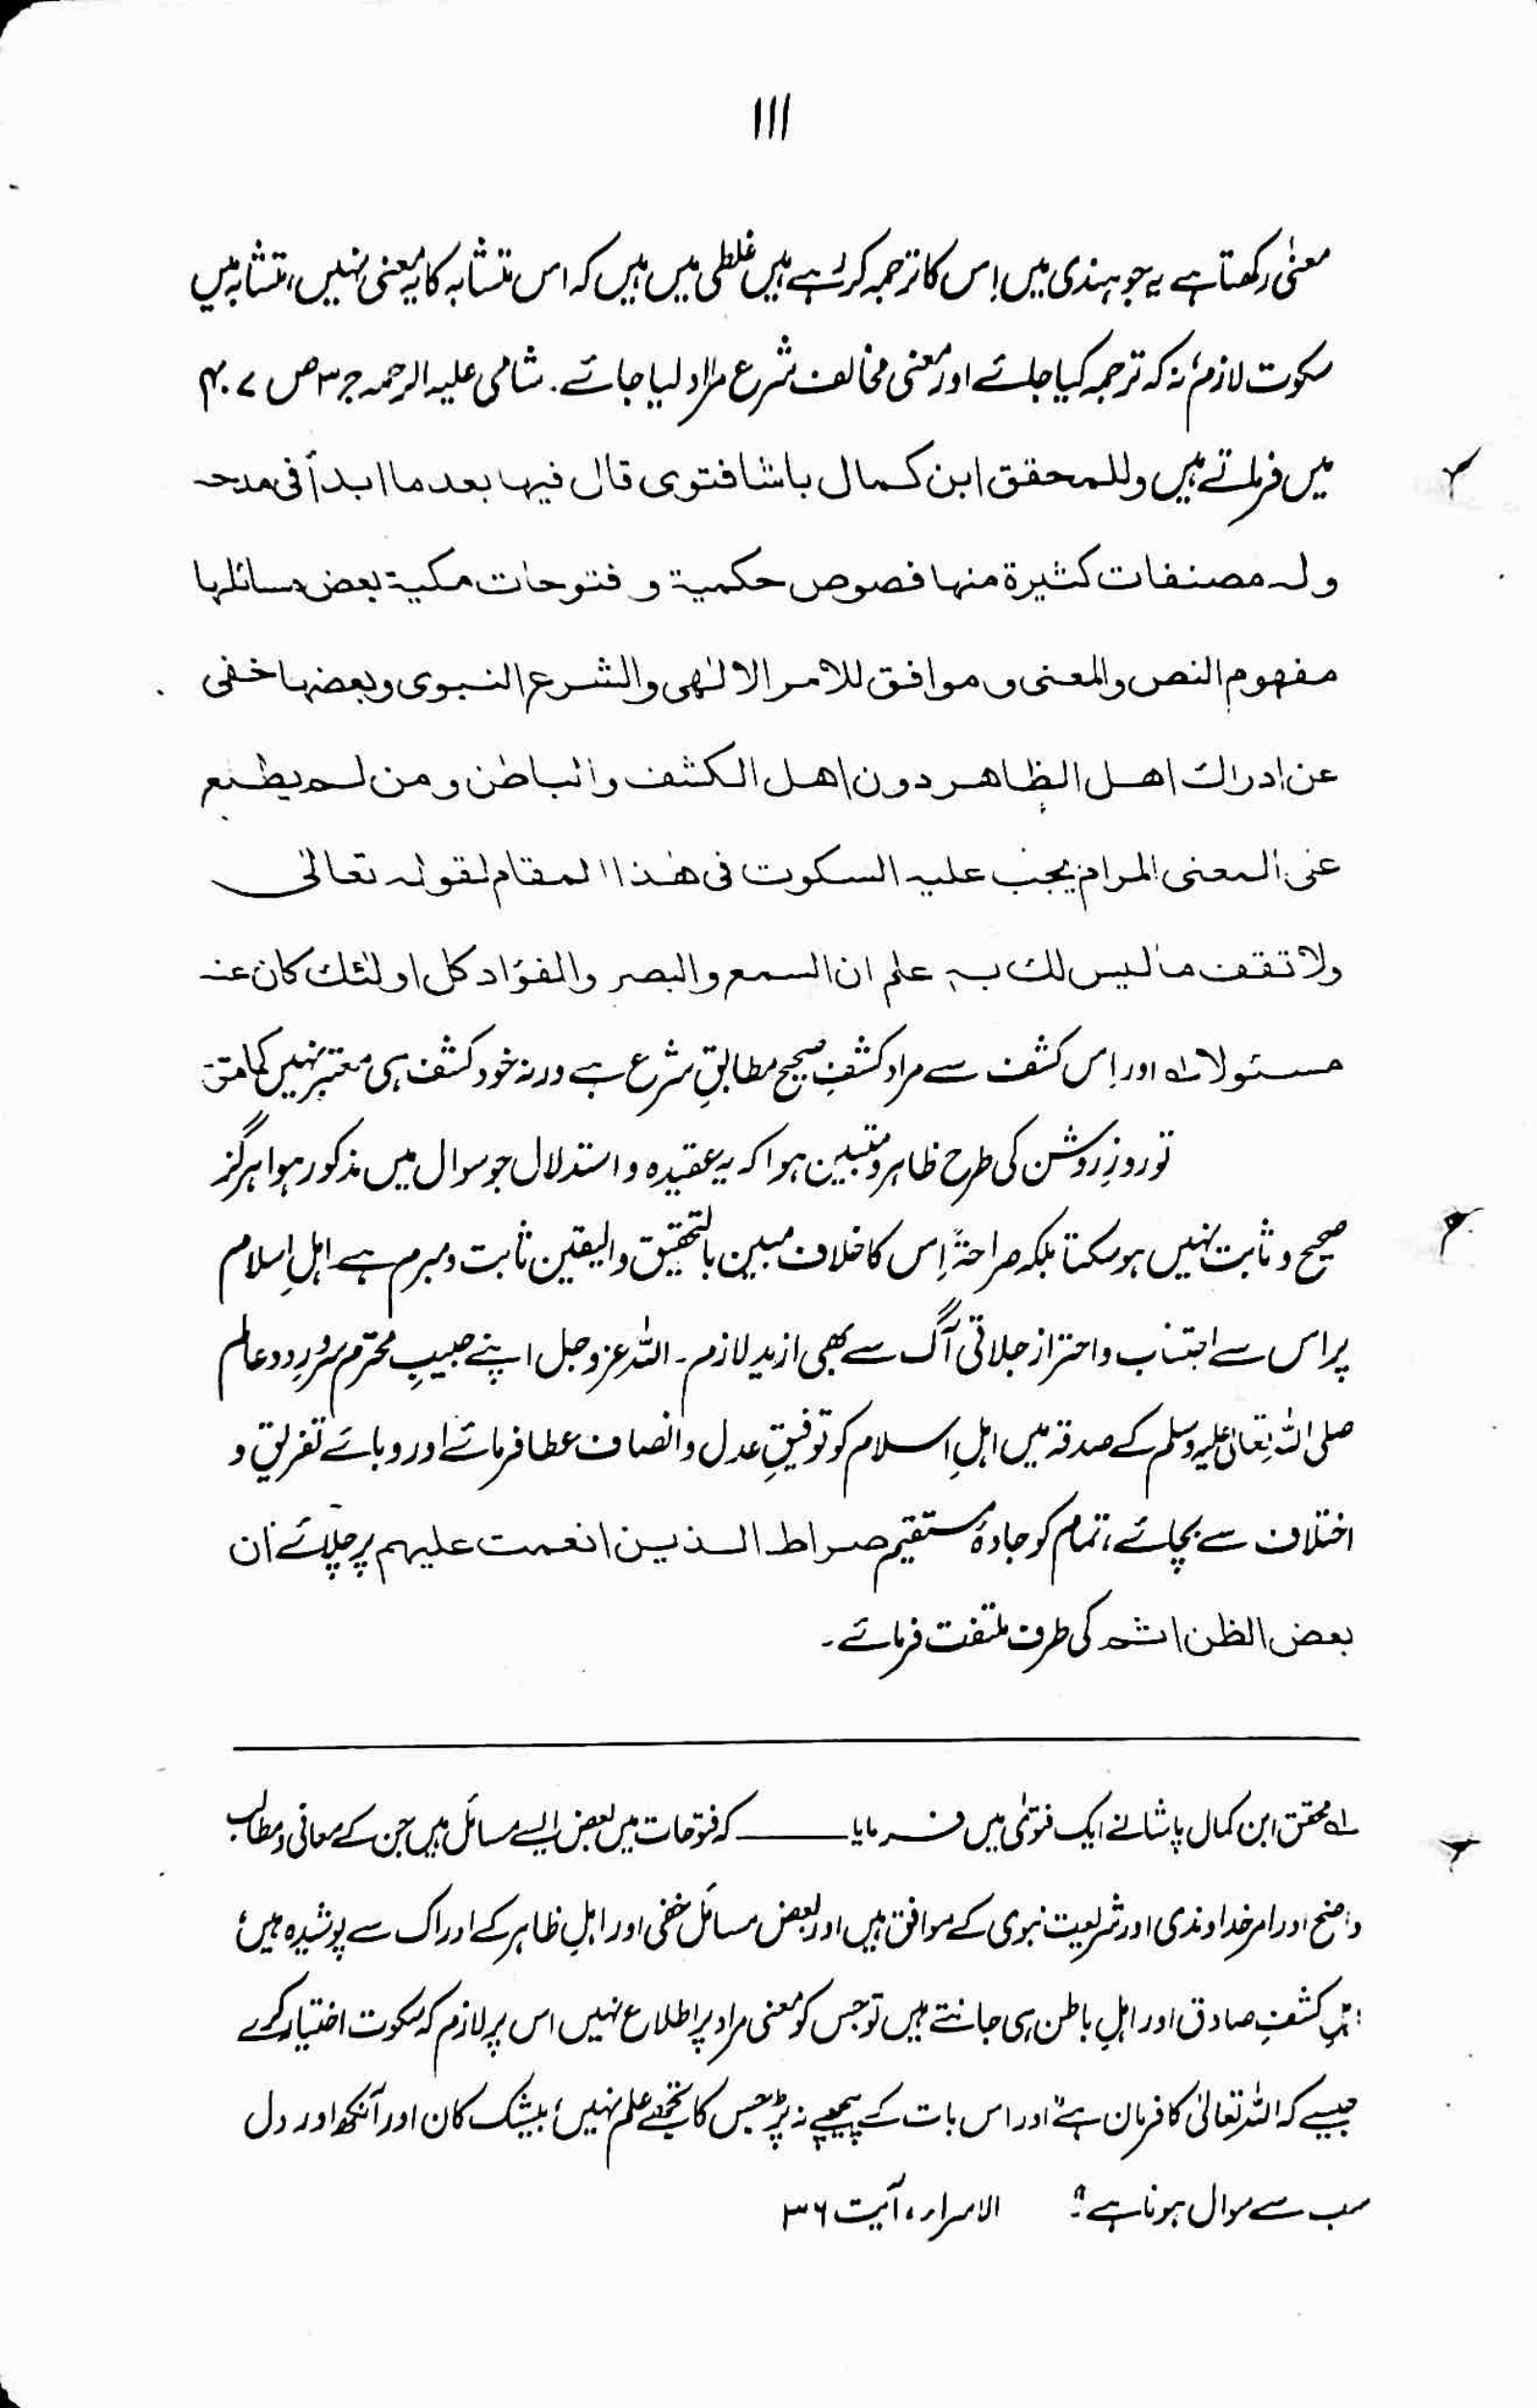 ۱۱۱
معنیٰ رکھتا ہے یہ جو ہندی میں اِس کا ترجمہ کر رہے ہیں غلطی میں ہیں کہ اس متشابہ کا یہ معنی نہیں، متشابہ میں
سکوت لازم، نہ کہ ترجمہ کیا جائے اور معنی مخالف شرع مراد لیا جائے۔ شامی علیہ الرحمہ ج ۳ ص ۴۰۷
میں فرماتے ہیں وللمحقق ابن کمال باشا فتوی قال فیہا بعد ما ابدأ فی مدحہ
ولہ مصنفات کثیرة منہا فصوص حکمیة و فتوحات مکیة بعض مسائلہا
مفہوم النص والمعنی و موافق للامر الالٰہی والشرع النبوی وبعضہا خفی
عن ادراک اھل الظاھر دون اھل الکشف والباطن ومن لم یطلع
عنی المعنی المرام یجب علیہ السکوت فی ھٰذا المقام لقولہ تعالیٰ
ولا تقف ما لیس لک بہ علم ان السمع والبصر والفؤاد کل اولٰئک کان عنہ
مسئولا لہ اور اِس کشف سے مراد کشفِ صحیح مطابقِ شرع ہے ورنہ خود کشف ہی معتبر نہیں کما مرّ
تو روزِ روشن کی طرح ظاہر و متبین ہوا کہ یہ عقیدہ و استدلال جو سوال میں مذکور ہوا ہرگز
صحیح و ثابت نہیں ہو سکتا بلکہ صراحۃً اِس کا خلاف مبین بالتحقیق والیقین ثابت و مبرم ہے اہلِ اسلام
پر اس سے اجتناب و احتراز جلاتی آگ سے بھی ازید لازم۔ اللہ عزوجل اپنے حبیبِ محترم سرورِ دو عالم
صلی اللہ تعالیٰ علیہ وسلم کے صدقہ میں اہلِ اسلام کو توفیقِ عدل و انصاف عطا فرمائے اور وبائے تفریق و
اختلاف سے بچائے، تمام کو جادۂ مستقیم صراط الذین انعمت علیہم پر چلائے ان
بعض الظن اثم کی طرف ملتفت فرمائے۔
لہ محقق ابن کمال پاشا نے ایک فتویٰ میں فرمایا ــــــ کہ فتوحات میں بعض ایسے مسائل ہیں جن کے معانی و مطالب
واضح اور امر خداوندی اور شریعت نبوی کے موافق ہیں اور بعض مسائل خفی اور اہلِ ظاہر کے ادراک سے پوشیدہ ہیں،
اہلِ کشفِ صادق اور اہلِ باطن ہی جانتے ہیں تو جس کو معنی مراد پر اطلاع نہیں اس پر لازم کہ سکوت اختیار کرے
جیسے کہ اللہ تعالیٰ کا فرمان ہے "اور اس بات کے پیچھے نہ پڑ جس کا تجھے علم نہیں، بیشک کان اور آنکھ اور دل
سب سے سوال ہونا ہے"۔ الاسراء، آیت ۳۶